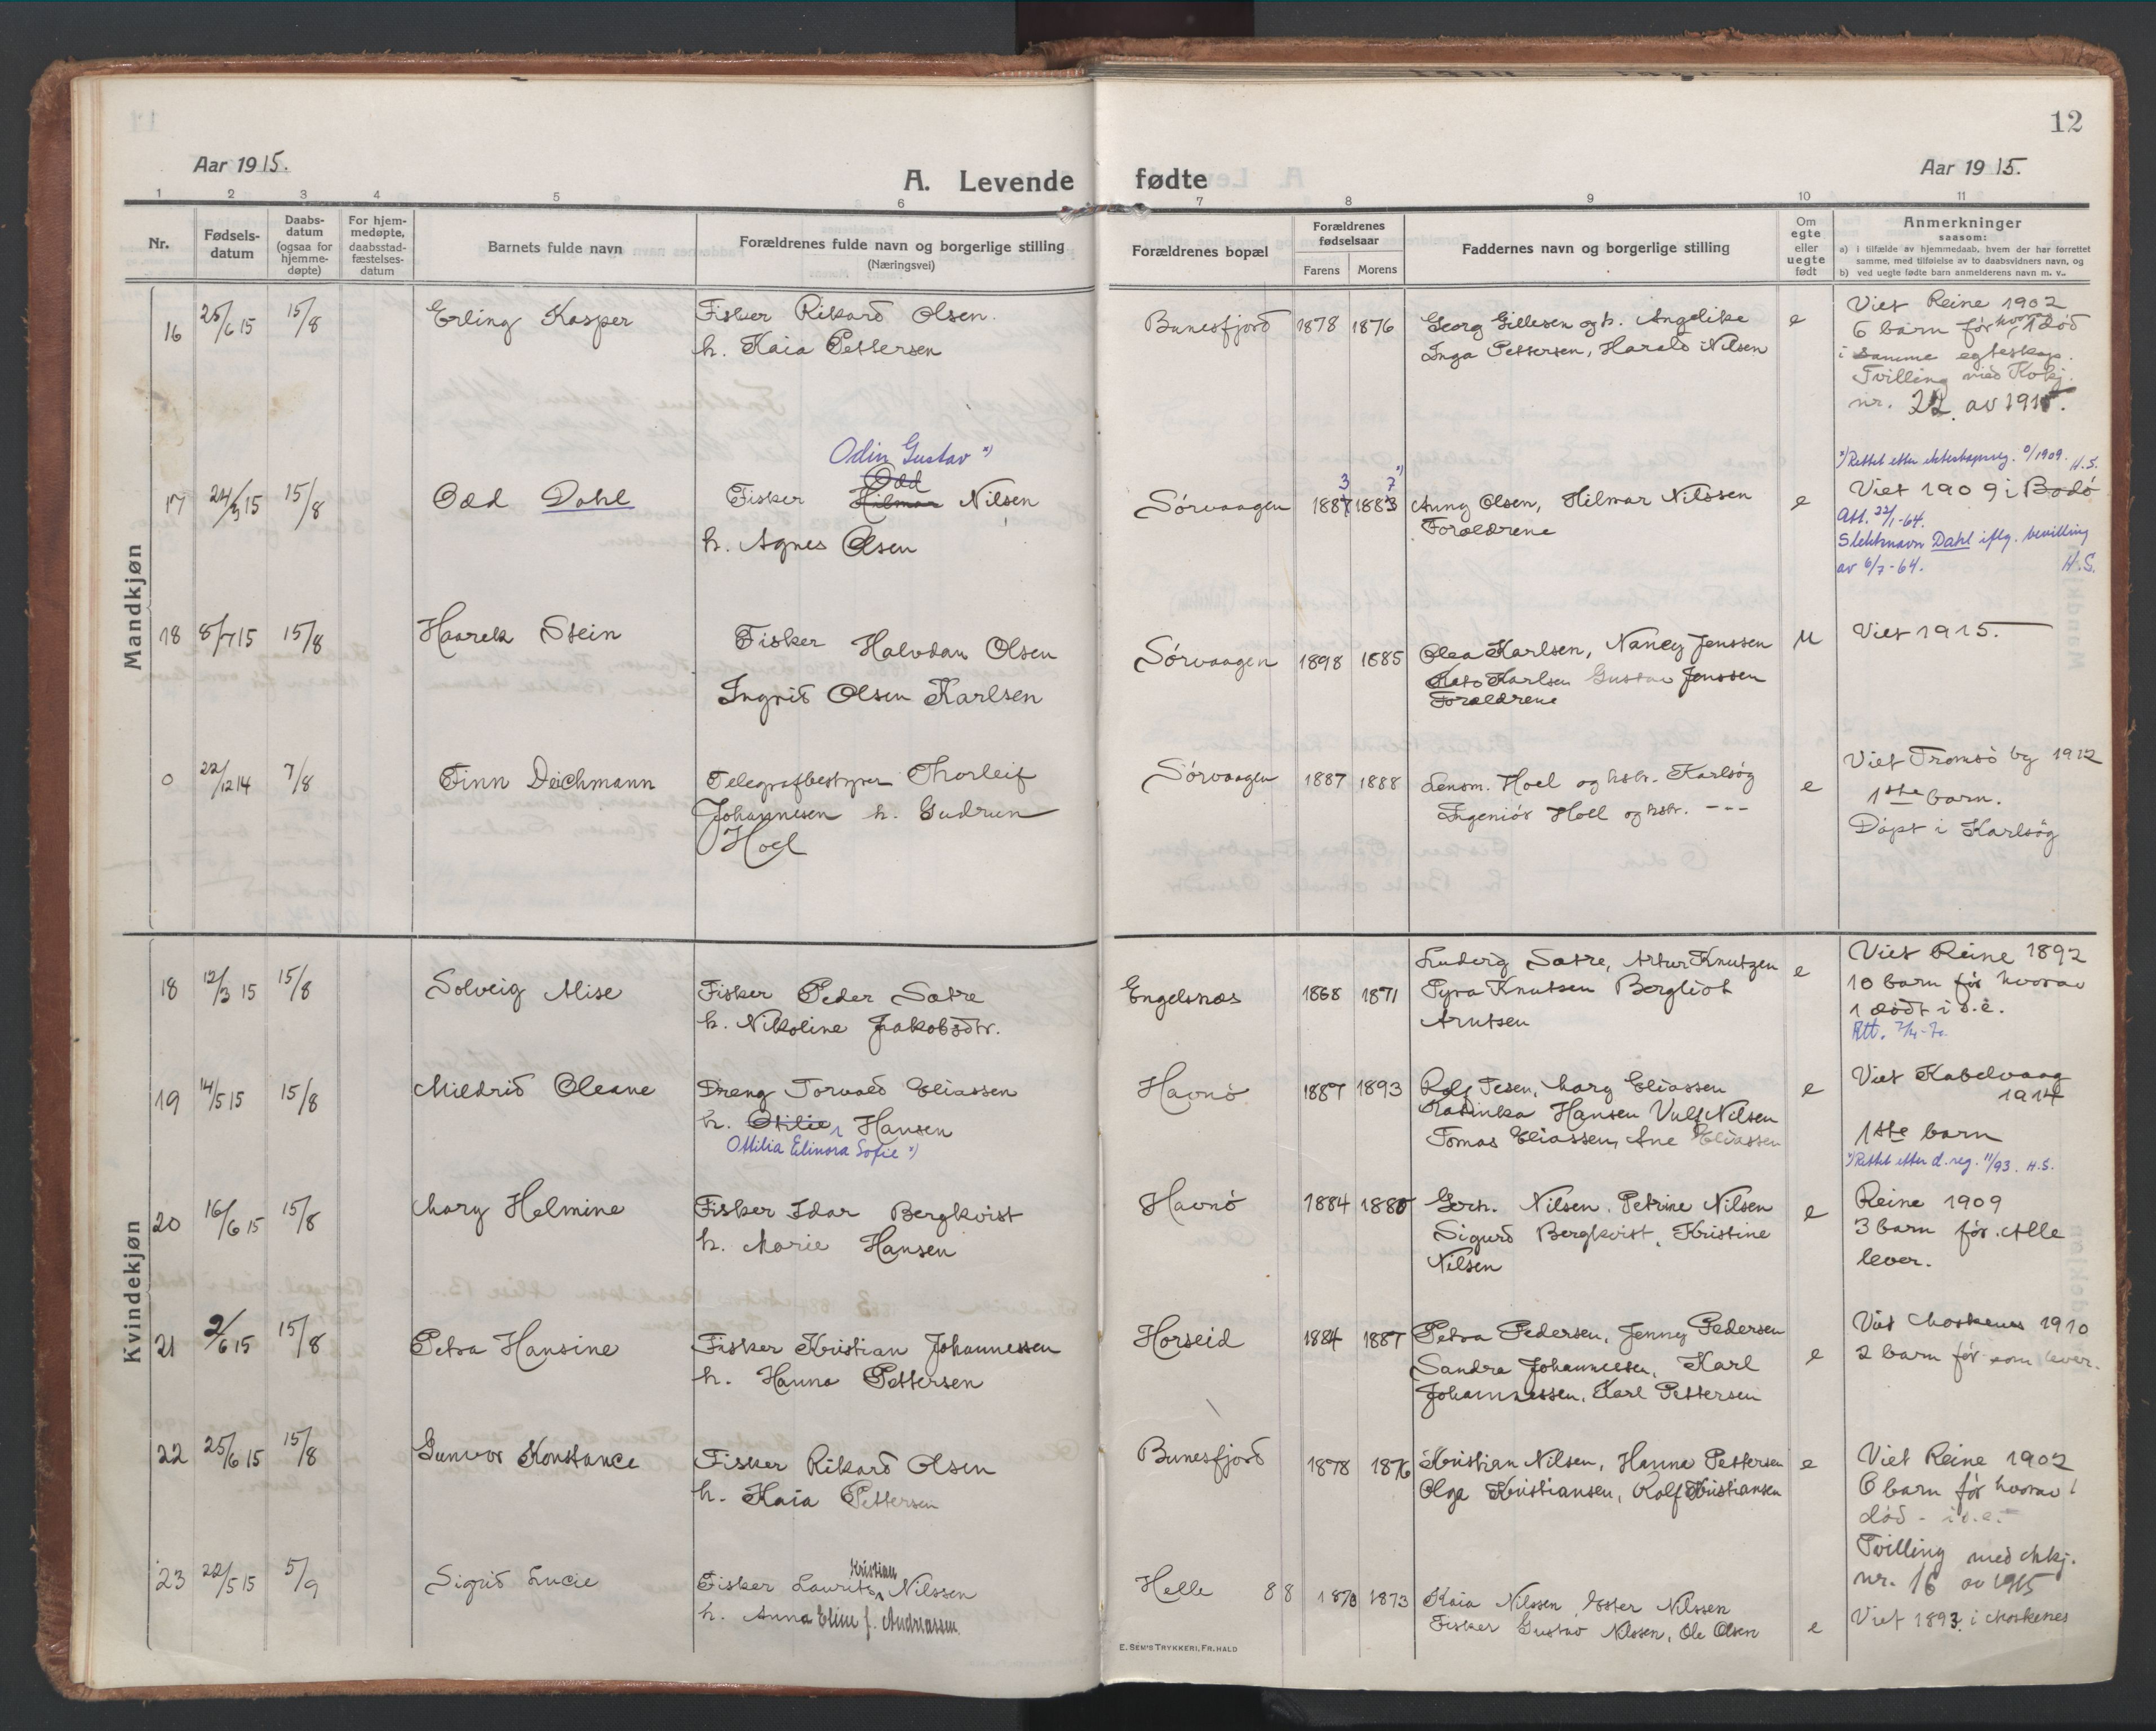 12
Aar 1915.
Aar 1915.
A. Levende
fødte
1 2 3 4 5 6 7 8 9 10 11
Nr.
Fødsels-
datum
Daabs-
datum
(ogsaa for
hjemme-
døpte)
For hjem-
medøpte,
daabsstad-
fæstelses-
datum
Barnets fulde navn
Forældrenes fulde navn og borgerlige stilling
(Næringsvei)
Forældrenes bopæl
Forældrenes
fødselsaar
Farens Morens
Faddernes navn og borgerlige stilling
Om
egte
eller
uegte
født
Anmerkninger
saasom:
a) i tilfælde av hjemmedaab, hvem der har forrettet
samme, med tilføielse av to daabsvidners navn, og
b) ved uegte fødte barn anmelderens navn m. v..
Mandkjøn
16 25/6 15 15/8 Erling Kasper
Fisker Rikard Olsen.
h. Kaia Pettersen
Bunesfjord 1878 1876
Georg Gillesen og h. Angelike
Inga Pettersen, Harald Nilsen
e
Viet Reine 1902
6 barn før hvorav 1 død
i samme egteskap.
Tvilling med Kvkj.
nr. 22 av 1915.
17 24/3 15 15/8 Odd Dahl
Odin Gustav x)
Odd
Fisker Hilmar Nilsen
h. Agnes Olsen
Sørvaagen
3 7 x)
1887 1883
Anny Olsen, Hilmar Nilssen
Forældrene
e
x) Rettet etter ekteskapsreg. /1909. H.S.
Viet 1909 i Bodø
Att. 22/1-64.
Slektsnavn Dahl iflg. bevilling
av 6/7-64. H.S.
18 8/7 15 15/8 Haarek Stein
Fisker Halvdan Olsen
Ingrid Olsen Karlsen
Sørvaagen 1898 1885
Olea Karlsen, Nancy Jenssen
Karlsen Gustav Jenssen
Forældrene
u
Viet 1915.
0 22/12 14 7/8 Finn Deichmann
Telegrafbestyrer Thorleif
Johannesen h. Gudrun
Hoel
Sørvaagen 1887 1888
Lensm. Hoel og hstr. Karlsøy
Ingeniør Hoel og hstr. ---
e
Viet Tromsø by 1912
1ste barn.
Døpt i Karlsøy
Kvindekjøn
18 12/3 15 15/8 Solveig Alise
Fisker Peder Sætre
h. Nikoline Jakobsdtr.
Engelsnæs 1868 1871
Ludvig Sætre, Artur Knutzen
Pyra Knutsen Bergliot
Arntsen
e
Viet Reine 1892
10 barn før hvorav
1 dødt i d.e.
Att.
19 14/5 15 15/8 Mildrid Oleane
Dreng Torvald Eliassen
h. Otilie Hansen
Ottilia Elinora Sofie x)
Havnø 1887 1893
Rolf Tesen, Mary Eliassen
Katinka Hansen Vulf Nilsen
Tomas Eliassen, Ane Eliassen
e
Viet Kabelvaag
1914
1ste barn
x) Rettet etter d. reg. 11/93. H.S.
20 16/6 15 15/8 Mary Helmine
Fisker Idar Bergkvist
h. Marie Hansen
Havnø 1884 1880
Gerh. Nilsen. Petrine Nilsen
Sigurd Bergkvist, Kristine
Nilsen
e
Reine 1909
3 barn før. Alle
lever.
21 2/6 15 15/8 Petra Hansine
Fisker Kristian Johannessen
h. Hanna Pettersen
Horseid 1884 1887
Petra Pedersen, Jenny Pedersen
Sandra Johannessen, Karl
Johannessen, Karl Pettersen
e
Viet Moskenes 1910
2 barn før som lever.
22 25/6 15 15/8 Gunvor Konstance
Fisker Rikard Olsen
h. Kaia Pettersen
Bunesfjord 1878 1876
Kristian Nilsen, Hanna Pettersen
Olga Kristiansen, Rolf Kristiansen
e
Viet Reine 1902
6 barn før hvorav 1
død - i d.e.
Tvilling med Mkj.
nr. 16 av 1915
23 22/5 15 5/9 Sigrid Lucie
Kristian
Fisker Laurits Nilssen
h. Anna Eline f. Andreassen
Helle 88 1873 1873
Kaia Nilssen, Ester Nilssen
Fisker Gustav Nilssen, Ole Olsen
e
Viet 1893 i Moskenes
E. SEM'S TRYKKERI, FR.HALD